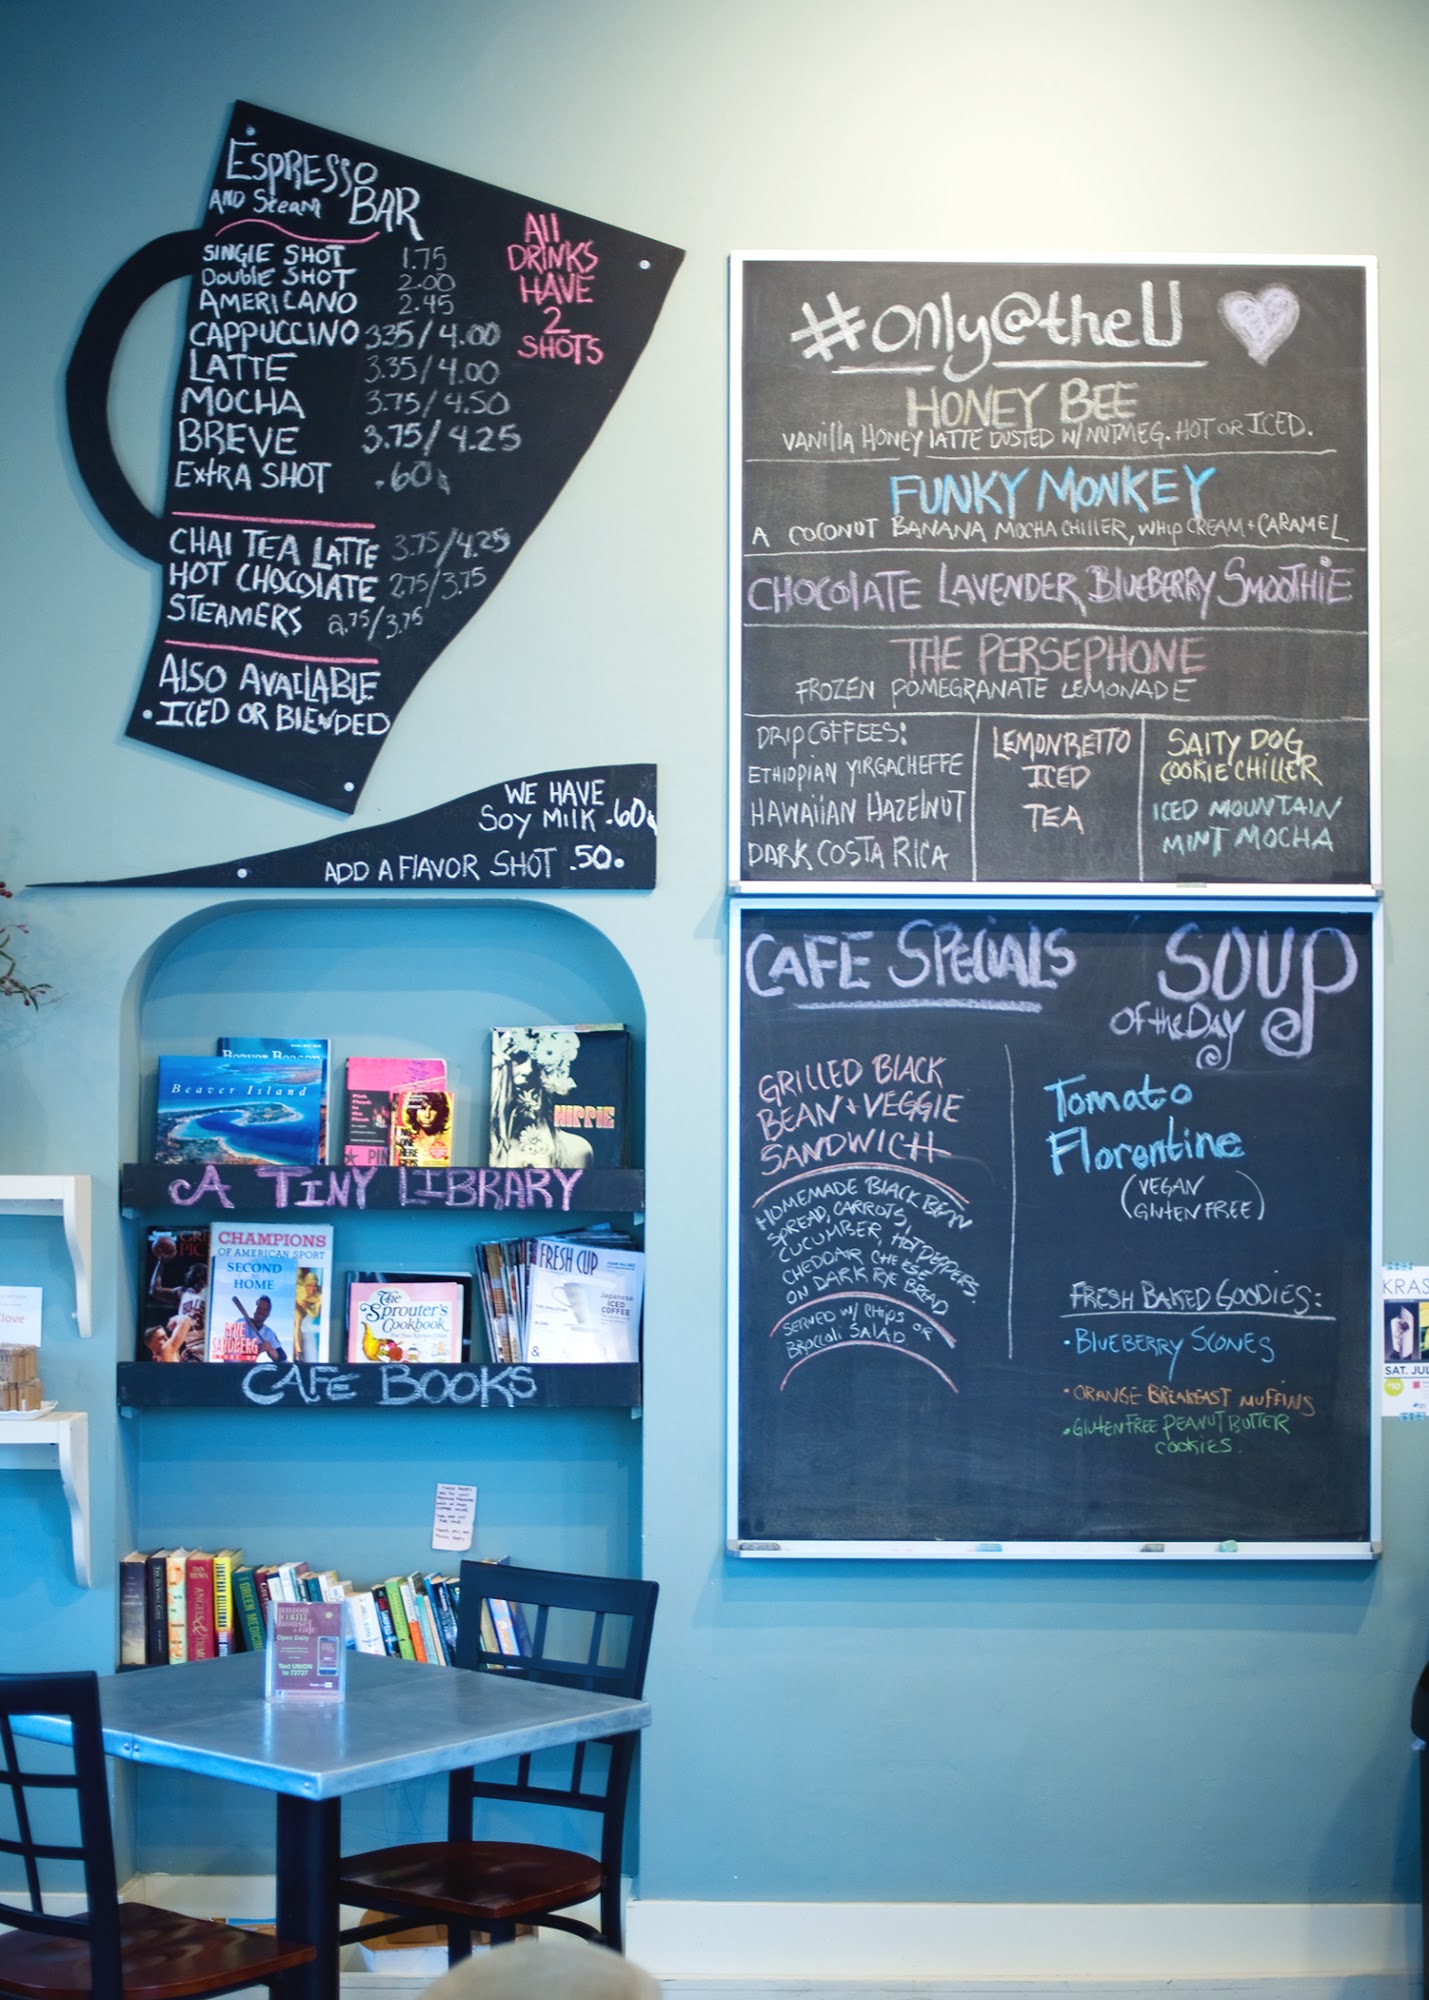 ESPRESSO
AND Steam BAR
All
DRINKS
HAVE
2
SHOTS
SINGLE SHOT 1.75
DOUBLE SHOT 2.00
AMERICANO 2.45
CAPPUCCINO 3.35/4.00
LATTE 3.35/4.00
MOCHA 3.75/4.50
BREVE 3.75/4.25
EXtRA SHOT .60¢
CHAI TEA LATTE 3.75/4.25
HOT CHOCOLATE 2.75/3.75
STEAMERS 2.75/3.75
ALSO AVAILABLE
• ICED OR BLENDED
WE HAVE
SOY MILK .60¢
ADD A FLAVOR SHOT .50.
#only@theU
HONEY BEE
VANIllA HONEY LATTE DUSTED W/ NUTMEG. HOT OR ICED.
FUNKY MONKEY
A COCONUT BANANA MOCHA CHILLER, WHIP CREAM + CARAMEL
CHOCOLATE LAVENDER BLUEBERRY SMOOTHIE
THE PERSEPHONE
FROZEN POMEGRANATE LEMONADE
DRIP COFFEES:
ETHIOPIAN YIRGACHEFFE
HAWAIIAN HAZELNUT
DARK COSTA RICA
LEMONRETTO
ICED
TEA
SALTY DOG
COOKIE CHILLER
ICED MOUNTAIN
MINT MOCHA
CAFE SPECIALS
GRILLED BLACK
BEAN + VEGGIE
SANDWICH
HOMEMADE BLACK BEAN
SPREAD, CARROTS,
CUCUMBER, HOT PEPPERS.
CHEDDAR CHEESE
ON DARK RYE BREAD
SERVED W/ CHIPS OR
BROCCOLI SALAD
SOUP
Of the DAY
Tomato
Florentine
(VEGAN
GLUTEN FREE)
FRESH BAKED GOODIES:
• BLUEBERRY SCONES
• ORANGE BREAKFAST MUFFINS
• GLUTEN FREE PEANUT BUTTER
COOKIES.
Beaver Island
HIPPIE
A TINY LIBRARY
CHAMPIONS
OF AMERICAN SPORT
SECOND
to
HOME
RYNE
SANDBERG
BULLS
The
Sprouter's
Cookbook
FRESH CUP
Japanese
ICED
COFFEE
&
CAFE BOOKS
GREEN MEDICINE
union
coffee
house
& cafe
Open Daily
Text UNION
to 72727
love
KRAS
SAT. JUL